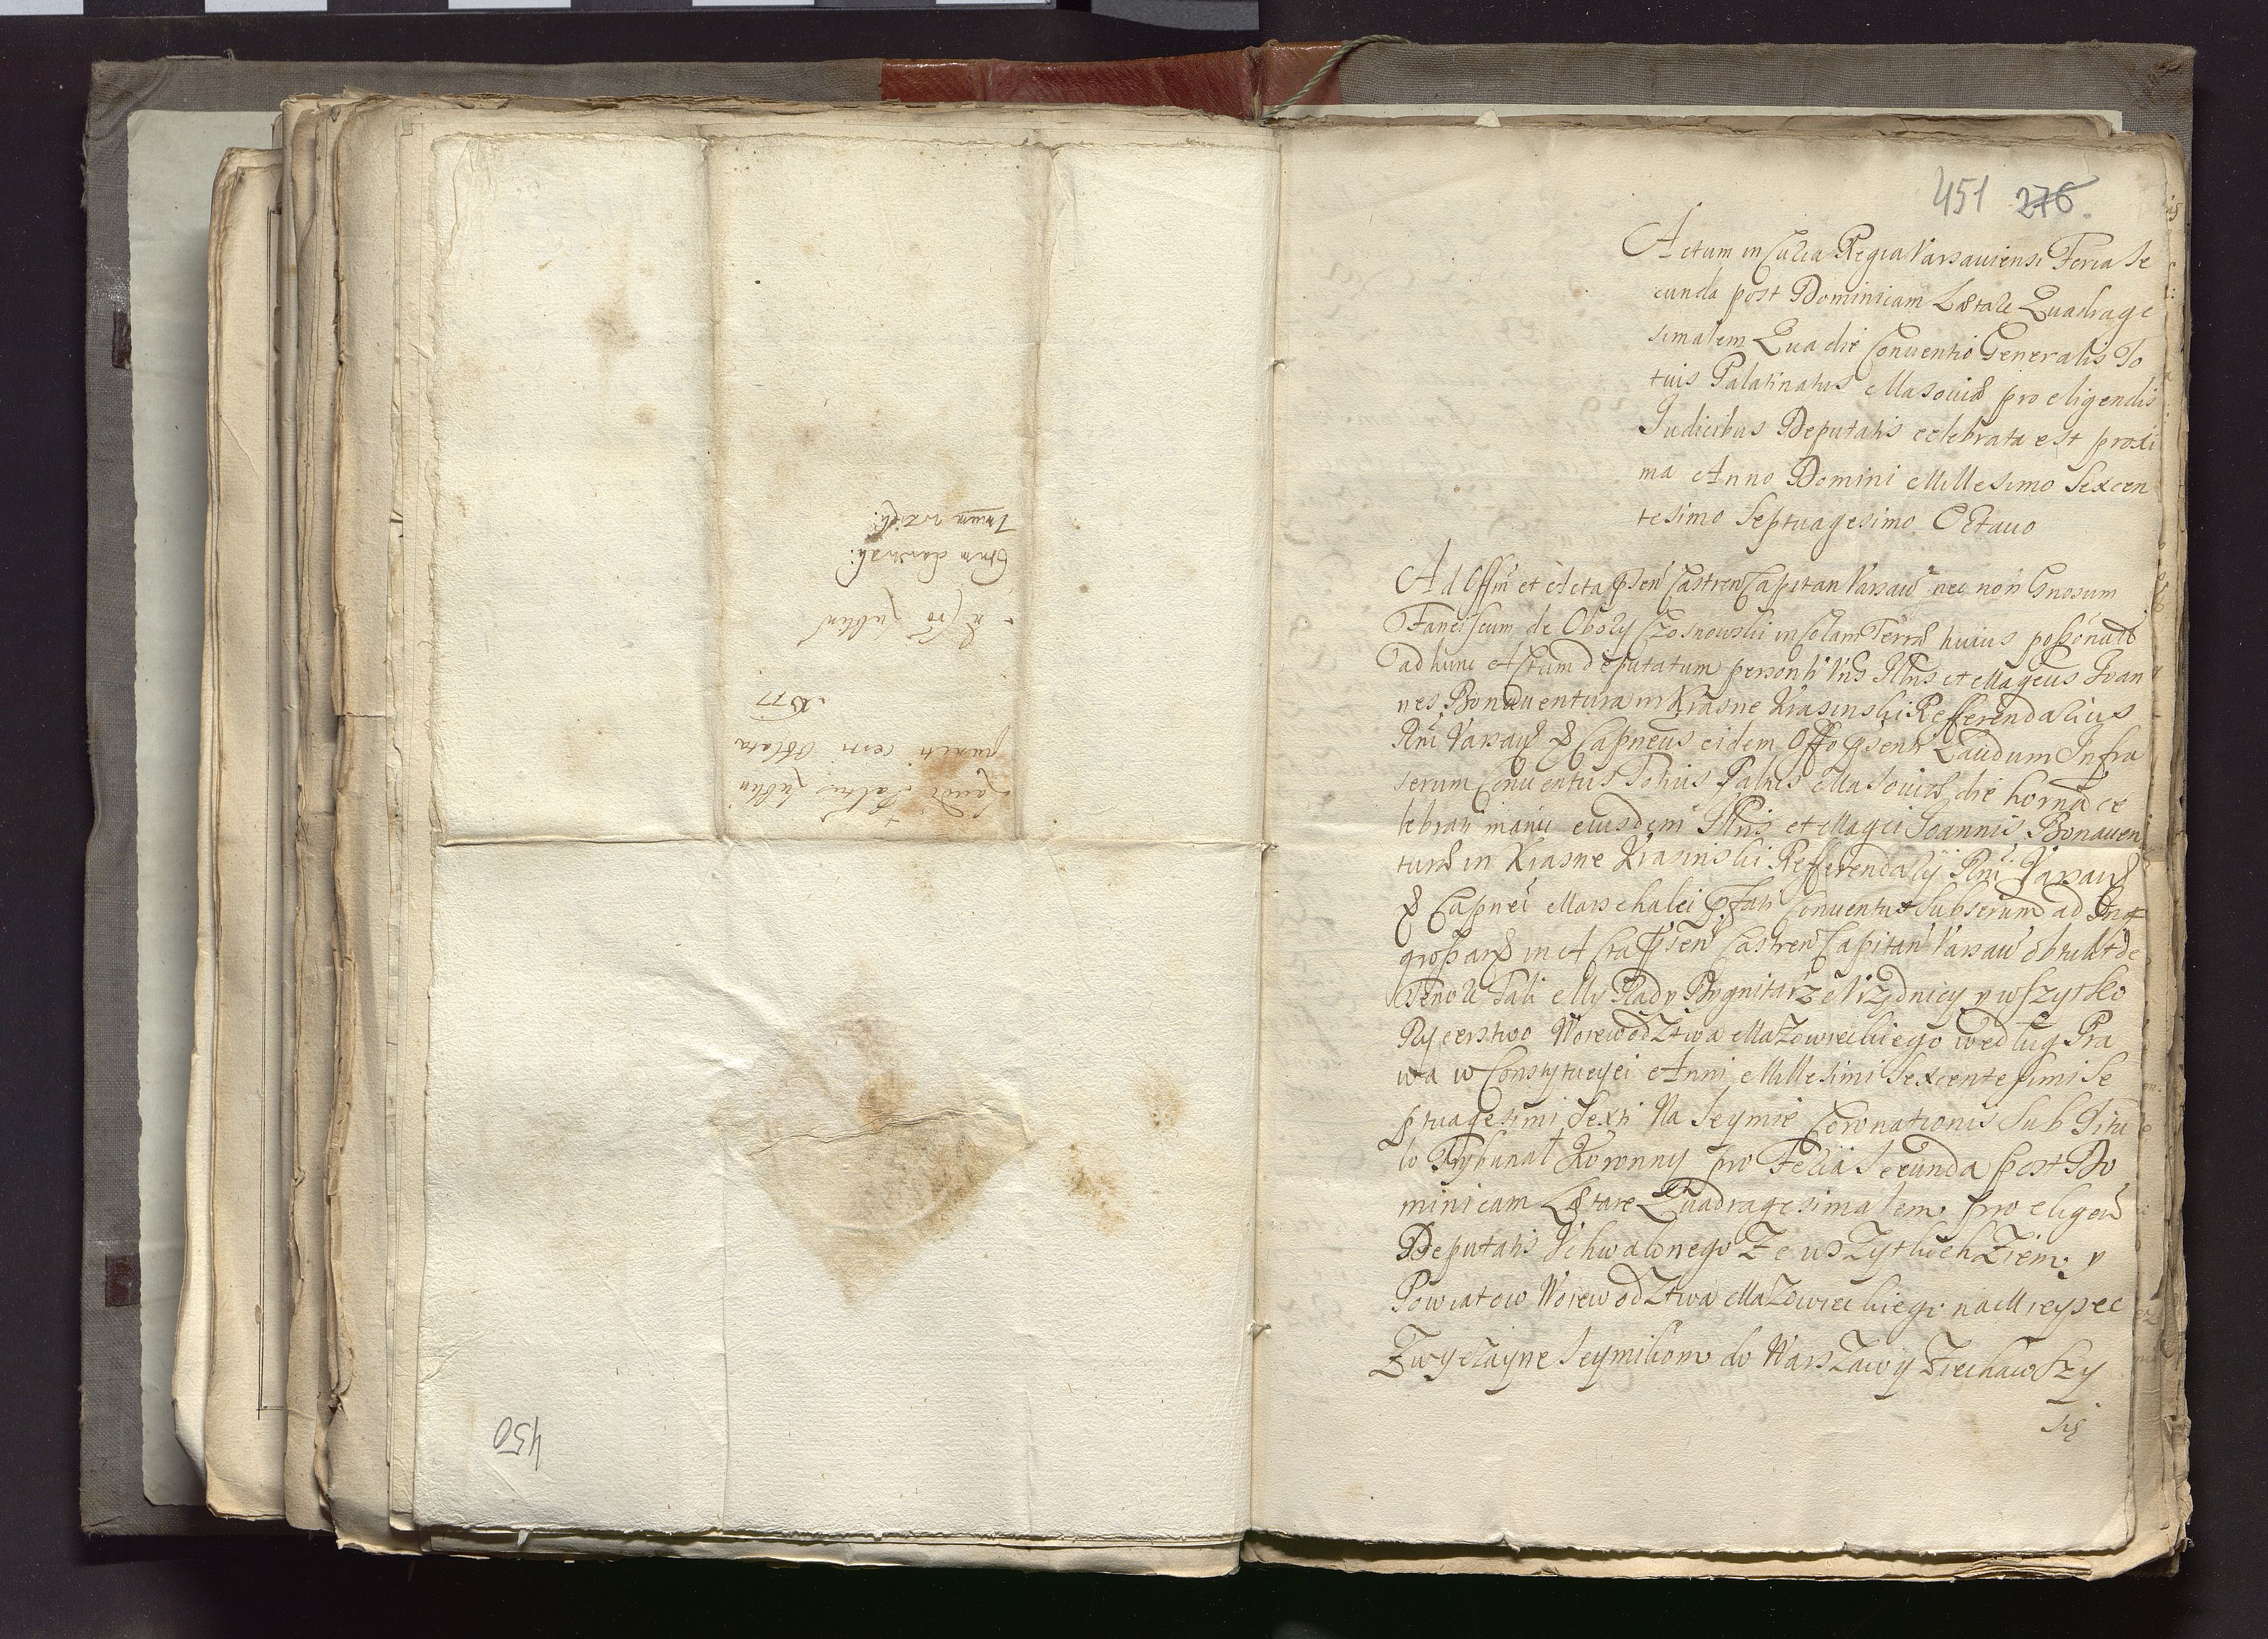 Laudi Paltus Lublin
punctti certi oblata
1677
Lublin
450
451 276
Actum in Curia Regia Varsauiensi Feria Se
cunda post Dominicam Lætare Quadrage
simalem Qua die Conuentio Generalis To
tuis Palatinatus Masouiæ pro eligendis
Judicibus Deputatis celebrata est proxi
ma Anno Domini Millesimo Sexcen
tesimo Septuagesimo Octauo
Ad Offm et Acta psen Castren Capitan Varsau nec non Gnosum
Franciscum de Obory Czosnowski in Colam Terræ huius
ad hunc Actum deputatum personlr Vns Illris et Magcus Ioan
nes Bonauentura in Krasne Krasinski Refferendarius
Rni Varsau & Capneus eidem Offo psenti Laudum Infra
scrum Conuentus Totius Paltus Masouiæ die horna ce
lebrati manu eiusdem Illris et Magci Ioannis Bonauen
turæ in Krasne Krasinski Refferendarij Rni Varsau
& Capnei Marschalci pfati Conuentus Subscrum ad Ing
grossand in Acta psen Castren Capitan Varsau obtulit de
Tenore Tali My Rady Dygnitarze Vrzędnicy y wszytko
Rycerstwo Woiewodztwa Mazowieckiego według Pra
wa w Constytucyei Anni Millesimi Sexcentesimi Se
ptuagesimi Sexti Na Seymie Coronationis Sub Titu
lo Trybunał Koronny pro Feria Secunda post Do
minicam Lætare Quadragesimalem pro eligen
Deputatis Vchwalonego Ze wszytkich Ziem y
Powiatow Woiewodztwa Mazowieckiego na Mieysce
Zwyczayne Seymikom do Warszawy Ziechawszy
się